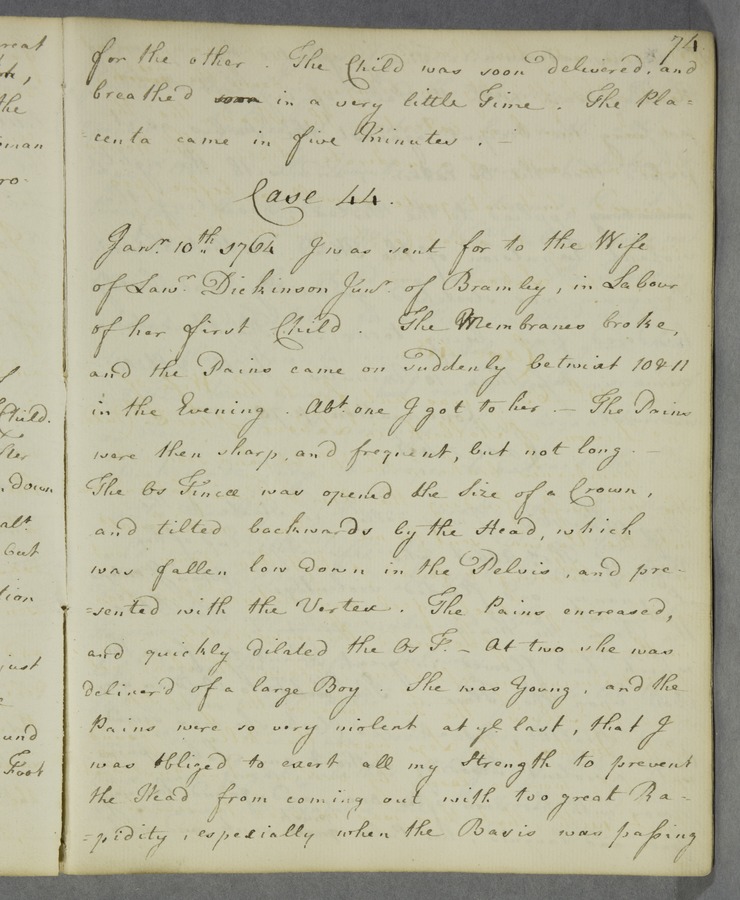 reat
the
man
ro-
Child.
down
but
tion
just
und
Foot
74
for the other . The Child was soon delivered, and
breathed soon in a very little Time . The Pla=
=centa came in five Minutes . -
Case 44.
Janʸ. 10th 1764 I was sent for to the Wife
of Lawʳ. Dickinson Junʳ. of Bramley, in Labour
of her first Child . The Membranes broke,
and the Pains came on Suddenly betwixt 10 & 11
in the Evening . Abt. one I got to her . - The Pains
were then sharp, and frequent, but not long. -
The Os Tincæ was opened the Size of a Crown,
and tilted backwards by the Head, which
was fallen low down in the Pelvis, and pre-
=sented with the Vertex . The Pains encreased,
and quickly dilated the Os T. - At two she was
deliver'd of a large Boy . She was Young, and the
Pains were so very violent at ye last, that I
was obliged to exert all my Strength to prevent
the Head from coming out with too great Ra-
=pidity, especially when the Basis was passing